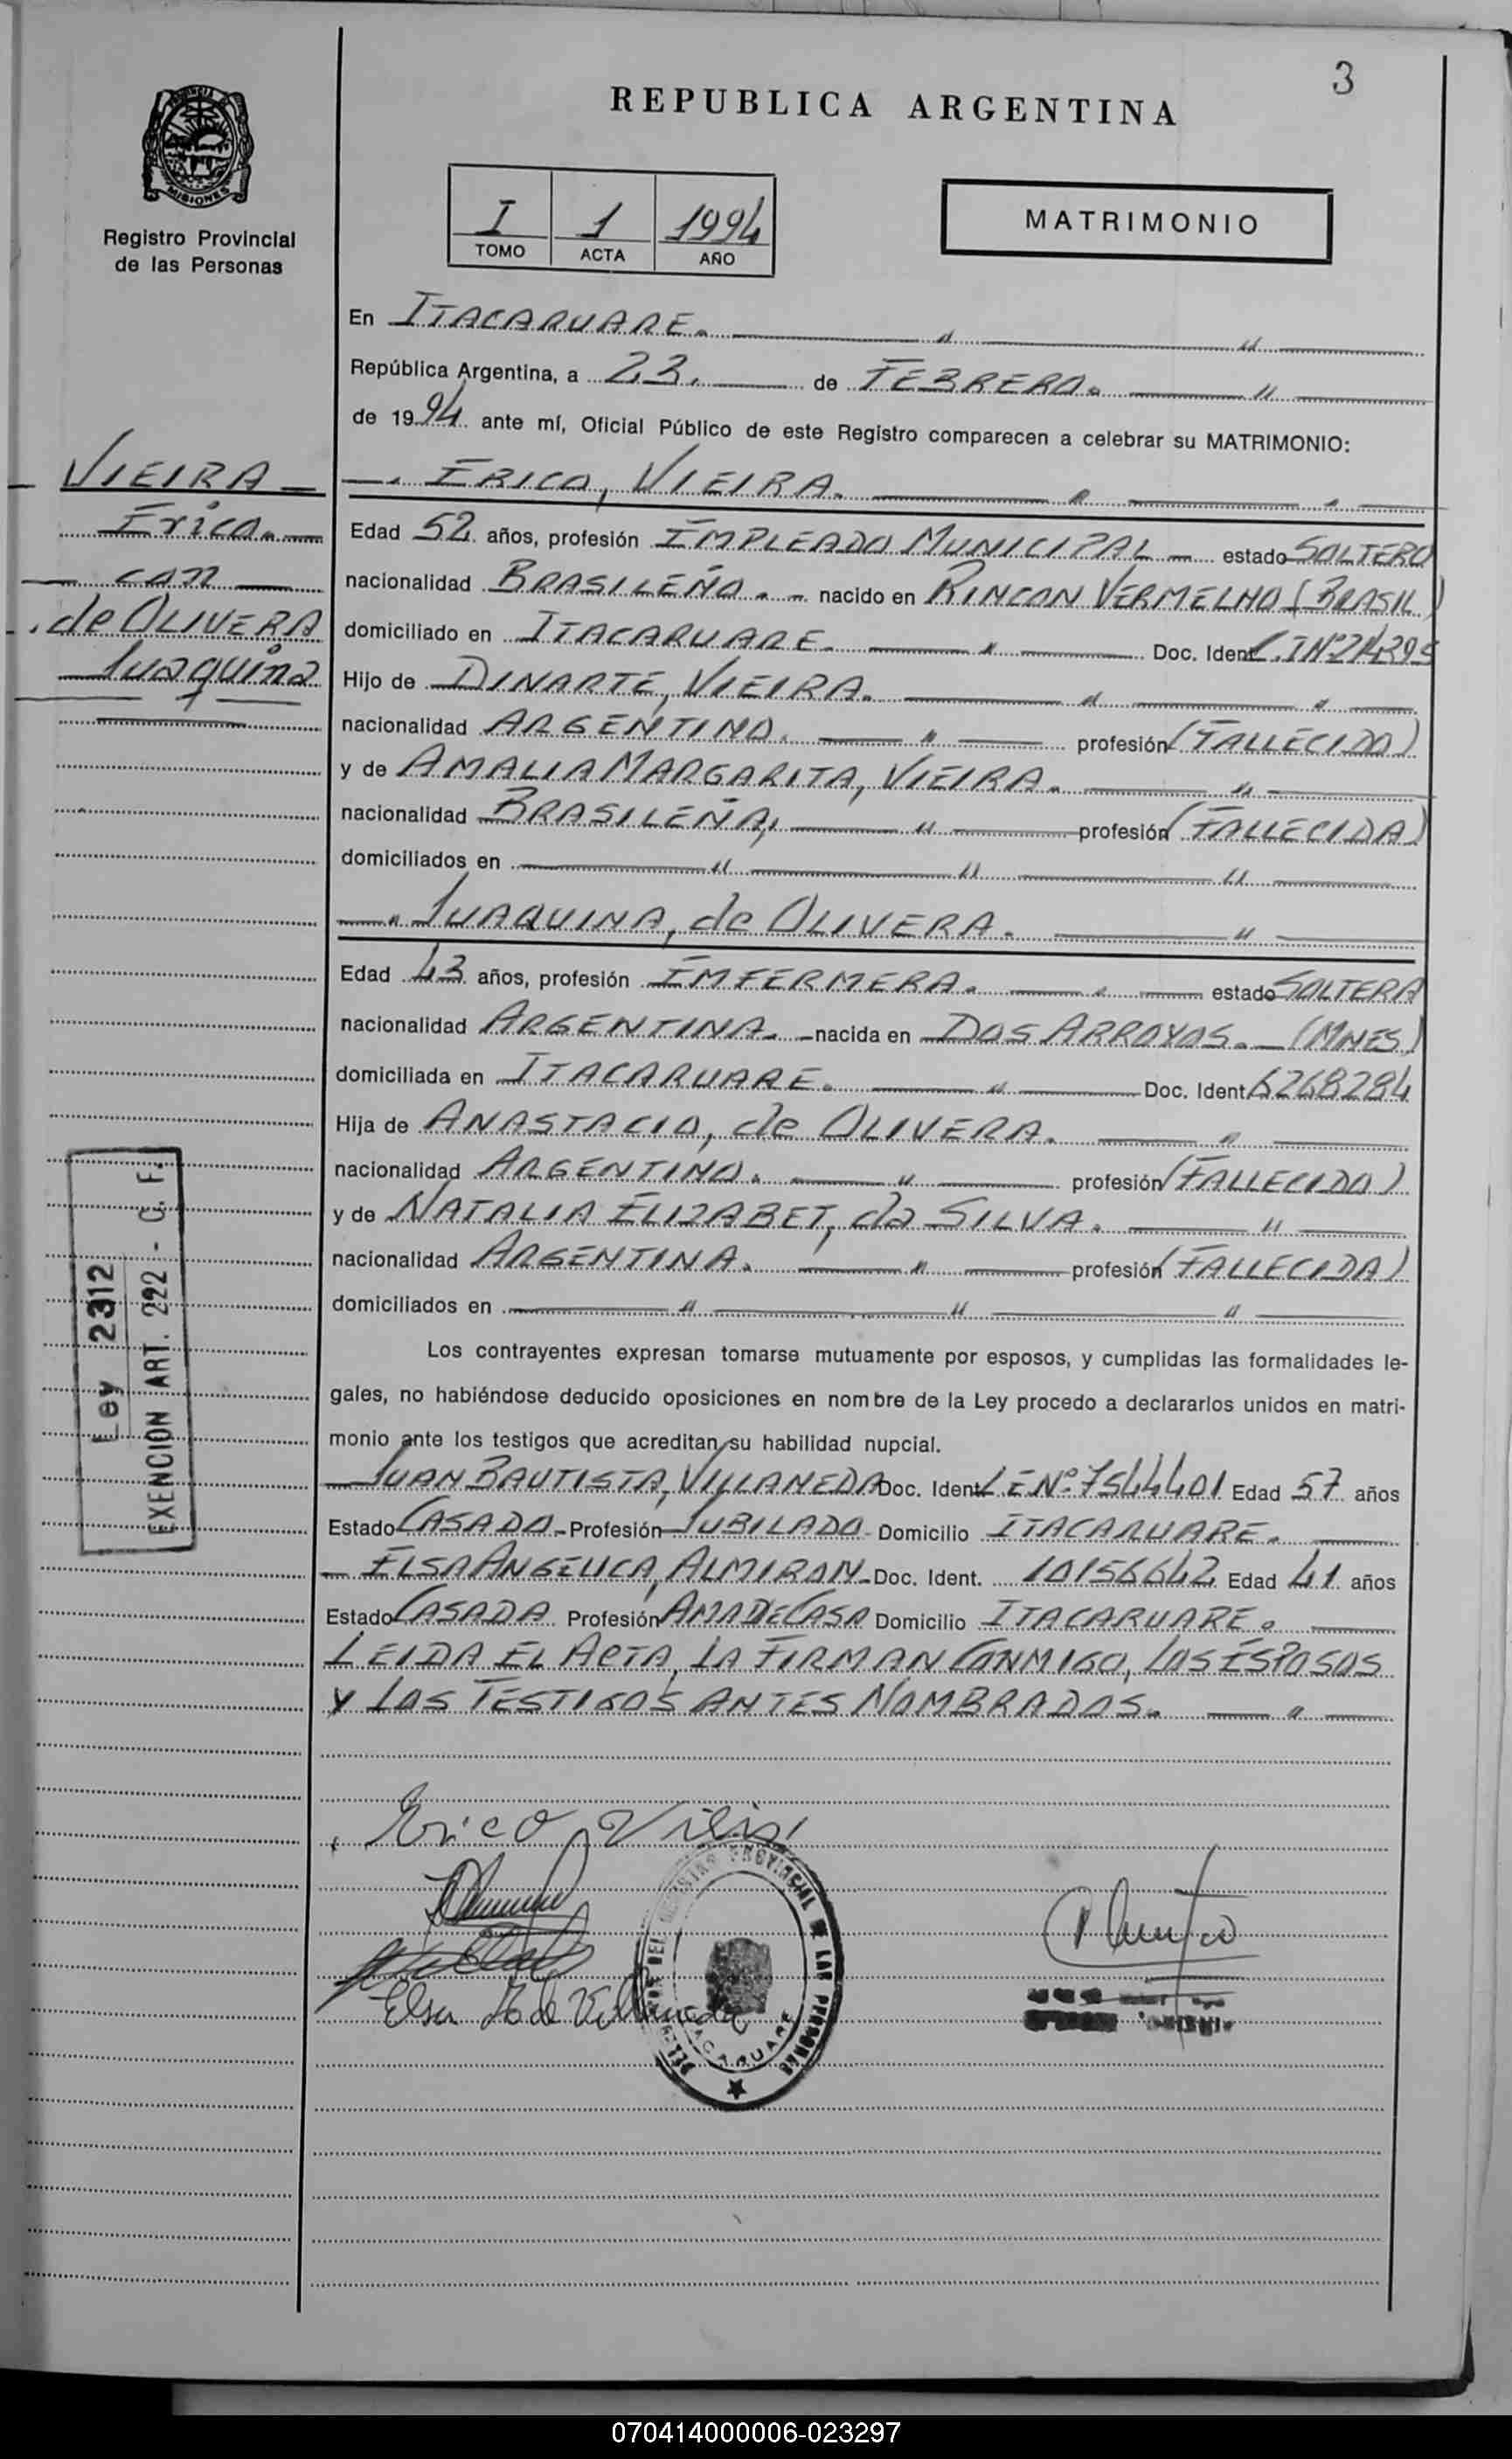 3
REPUBLICA ARGENTINA
MISIONES
Registro Provincial
de las Personas
I 1 1994
TOMO ACTA AÑO
MATRIMONIO
En ITACARUARE.
República Argentina, a 23. de FEBRERO.
de 1994 ante mí, Oficial Público de este Registro comparecen a celebrar su MATRIMONIO:
VIEIRA
Erico.
con
de OLIVERA
Juaquina
ERICO, VIEIRA.
Edad 52 años, profesión EMPLEADO MUNICIPAL estado SOLTERO
nacionalidad BRASILEÑO. nacido en RINCON VERMELHO (BRASIL)
domiciliado en ITACARUARE. Doc. Ident
Hijo de DINARTE, VIEIRA.
nacionalidad ARGENTINO. profesión (FALLECIDO)
y de AMALIA MARGARITA, VIEIRA.
nacionalidad BRASILEÑA, profesión (FALLECIDA)
domiciliados en
JUAQUINA, de OLIVERA.
Edad 43 años, profesión EMFERMERA. estado SOLTERA
nacionalidad ARGENTINA. nacida en DOS ARROYOS. (MNES)
domiciliada en ITACARUARE. Doc. Ident 6268284
Hija de ANASTACIO, de OLIVERA.
nacionalidad ARGENTINO. profesión (FALLECIDO)
y de NATALIA ELIZABET, da SILVA.
nacionalidad ARGENTINA. profesión (FALLECIDA)
domiciliados en
Ley 2312
EXENCION ART. 222 - C. F.
Los contrayentes expresan tomarse mutuamente por esposos, y cumplidas las formalidades le-
gales, no habiéndose deducido oposiciones en nombre de la Ley procedo a declararlos unidos en matri-
monio ante los testigos que acreditan su habilidad nupcial.
JUAN BAUTISTA, VILLANEDA Doc. Ident L E Nº 7544401 Edad 57 años
Estado CASADO - Profesión JUBILADO - Domicilio ITACARUARE.
ELSA ANGELICA, ALMIRON - Doc. Ident. 10156642 Edad 41 años
Estado CASADA Profesión AMA DE CASA Domicilio ITACARUARE.
LEIDA EL ACTA, LA FIRMAN CONMIGO, LOS ESPOSOS
Y LOS TESTIGOS ANTES NOMBRADOS.
Erico
Elsa A de Villaneda
REGISTRO PROVINCIAL DE LAS PERSONAS
ITACARUARE
070414000006-023297